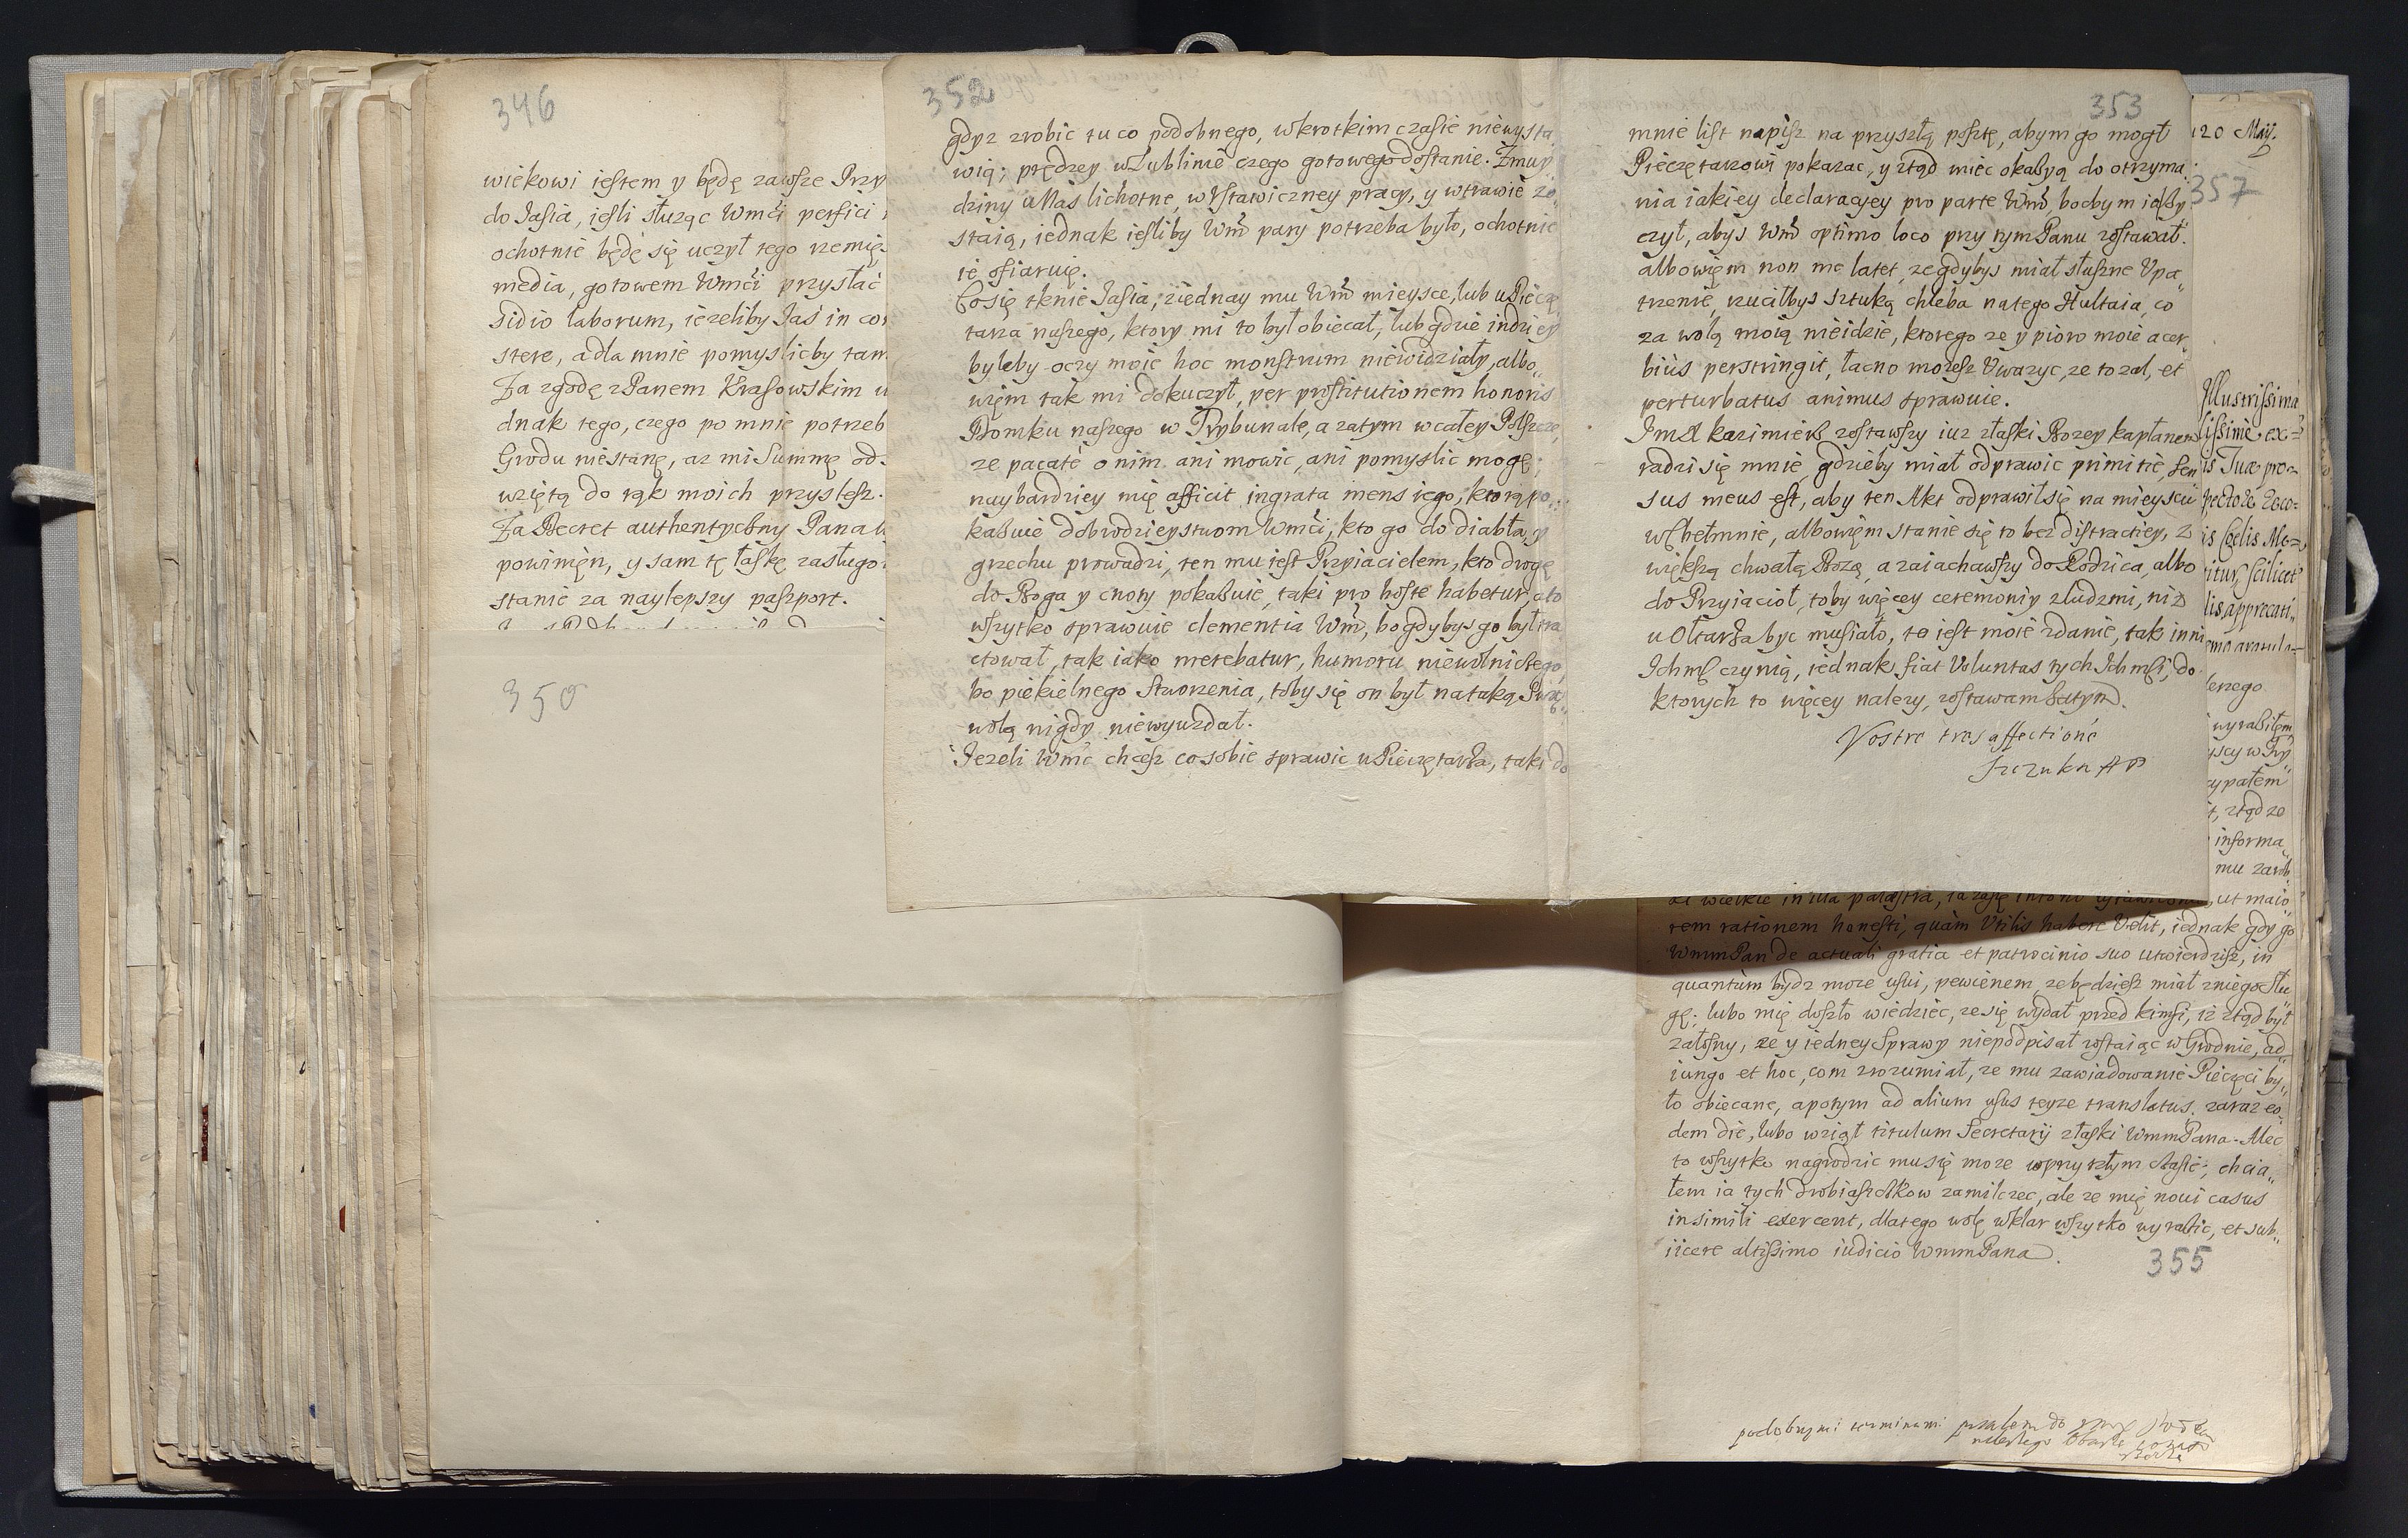 346
wiekowi iestem y będę zawsze Przy
do Jasia, iesli służąc Wmći perfici
ochotnie będę się uczył tego rzemię
media, gotowem Wmći przysłać
sidio laborum, ieżeliby Jaś in con
stere, a dla mnie pomyslicby tam
Za zgodę z Panem Krasowskim u
dnak tego, czego po mnie potrzeb
Grodu niestanę, aż mi Summę od
wziętą do rąk moich przyslesz.
Za Decret authentyczny Pana
powinięn, y sam tę łaskę zasługo
stanie za naylepszy paszport.
350
352
gdyz zrobic tu co podobnego, wkrotkim czasie niewysta
wią; prędzey w Lublinie czego gotowego dostanie. Zmuy
dziny u Nas lichotne, w Ustawiczney pracy, y w trawie zo
staią, iednak iesliby Wm pary potrzeba było, ochotnie
ie ofiaruię.
Co się tknie Jasia, ziednay mu Wm mieysce, lub u Pieczę
tarza naszego, ktory mi to był obiecał, lub gdzie indziey
byleby oczy moie hoc monstrum niewidziały, albo
więm tak mi dokuczył, per prostitutionem honoris
Domku naszego w Trybunale, a zatym w całey Polszcze,
ze pacaté o nim ani mowic, ani pomyslic mogę;
naybardziey mię afficit ingrata mens iego, ktorą po
kazuie dobrodzieystwom Wmći, kto go do diabła, y
grzechu prowadzi, ten mu iest Przyiacielem, kto drogę
do Boga y cnoty pokazuie, taki pro hoste habetur, a to
wszytko sprawuie clementia Wm, bo gdybys go był tra
ctował, tak iako merebatur, humoru niewolniczego,
bo piekielnego Stworzenia, toby się on był na taką Swa
wolą nigdy niewyuzdał.
Jezeli Wmć chcesz co sobie sprawic u Pieczętarza, taki do
353
mnie list napisz na przyszłą posztę, abym go mogł
Pieczętarzowi pokazac, y ztąd miec okazyą do otrzyma
nia iakiey declaracyey pro parte Wm, bo bym
czył, abys Wm optimo loco przy tym Panu zostawał.
albowięm non me latet, ze gdybys miał słuszne Upa
trzenie, rzuciłbys sztuką chleba na tego Hultaia, co
za wolą moią nieidzie, ktorego ze y pioro moie acer
biùs perstringit, łacno mozesz Uwazyc, ze to zal, et
perturbatus animus sprawuie.
JmX kazimierz zostawszy iuz z łaski Bozey kapłanem
radzi się mnie gdzieby miał odprawic primitie, sen
sus meus est, aby ten Akt odprawił się na mieyscu
w Chełmnie, albowięm stanie się to bez distractiey, z
większą chwałą Bozą, a zaiachawszy do Rodzica, albo
do Przyiacioł, toby więcey ceremoniy z ludzmi, niz
u Ołtarza byc musiało, to iest moie zdanie, tak inni
Ichmć czynią, iednak fiat Voluntas tych Ichmći, do
ktorych to więcey nalezy, zostawam zatym.
Vostre tres affectioné
Szczuka
20 Maij.
357
Illustrissima
lissimè ex=
is Tuæ pro=
pectore
is Cœlis
itur, scilicet
lis apprecati
wyraziłem
yscy w Try
ypałem
t, ztąd ze
informa
mu zarob
ut maio
rem rationem honesti, quàm Utilis habere Velit, iednak gdy go
WmmPan de actuali gratia et patrocinio suo utwierdzisz, in
quantùm bydz moze usui, pewienem, ze będziesz miał z niego Słu
gę; lubo mię doszło wiedziec, ze się wydał przed kimsi, iz ztąd był
załosny, ze y iedney Sprawy niepodpisał zostaiąc w Grodnie, ad
iungo et hoc, com zrozumiał, ze mu zawiadowanie Pieczęci by
ło obiecane, a potym ad alium usus teyze translatus. zaraz eo
dem die, lubo wziął titulum Secretarij z łaski WmmPana. Alec
to wszytko nagrodzic mu się moze w przyszłym czasie; chcia
łem ia tych drobiazczkow zamilczec, ale ze mię noui casus
in simili exercent, dlatego wolę wklar wszytko wyrazic, et sub
iicere altissimo iudicio WmmPana.
355
podobnymi terminami pisałem do